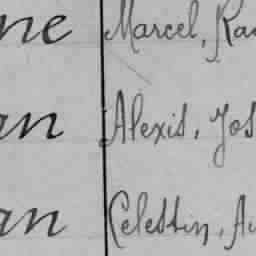 ne Marcel, Ra
an Alexis, Jos
an Celestin, Au